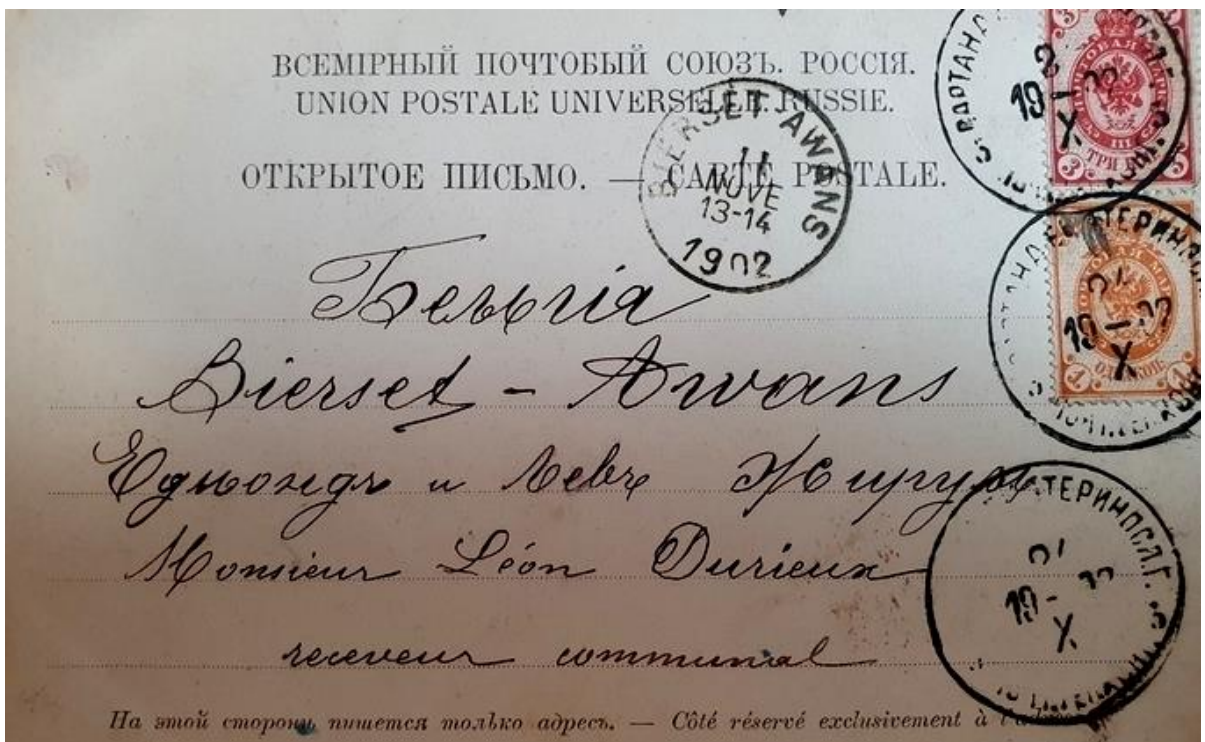 ВСЕМІРНЫЙ ПОЧТОВЫЙ СОЮЗЪ. РОССІЯ.
UNION POSTALE UNIVERSELLE. RUSSIE.
ОТКРЫТОЕ ПИСЬМО. — CARTE POSTALE.
BIERSET-AWANS
11
NOVE
13-14
1902
3
ТРИ КОП.
3
19
X
Бельгія
1
ОДНА КОП.
1
19
X
Bierset - Awans
Едмондъ и Левъ
Monsieur Léon Durieux
19
X
receveur communal
На этой сторонѣ пишется только адресъ. — Côté réservé exclusivement à l'adresse